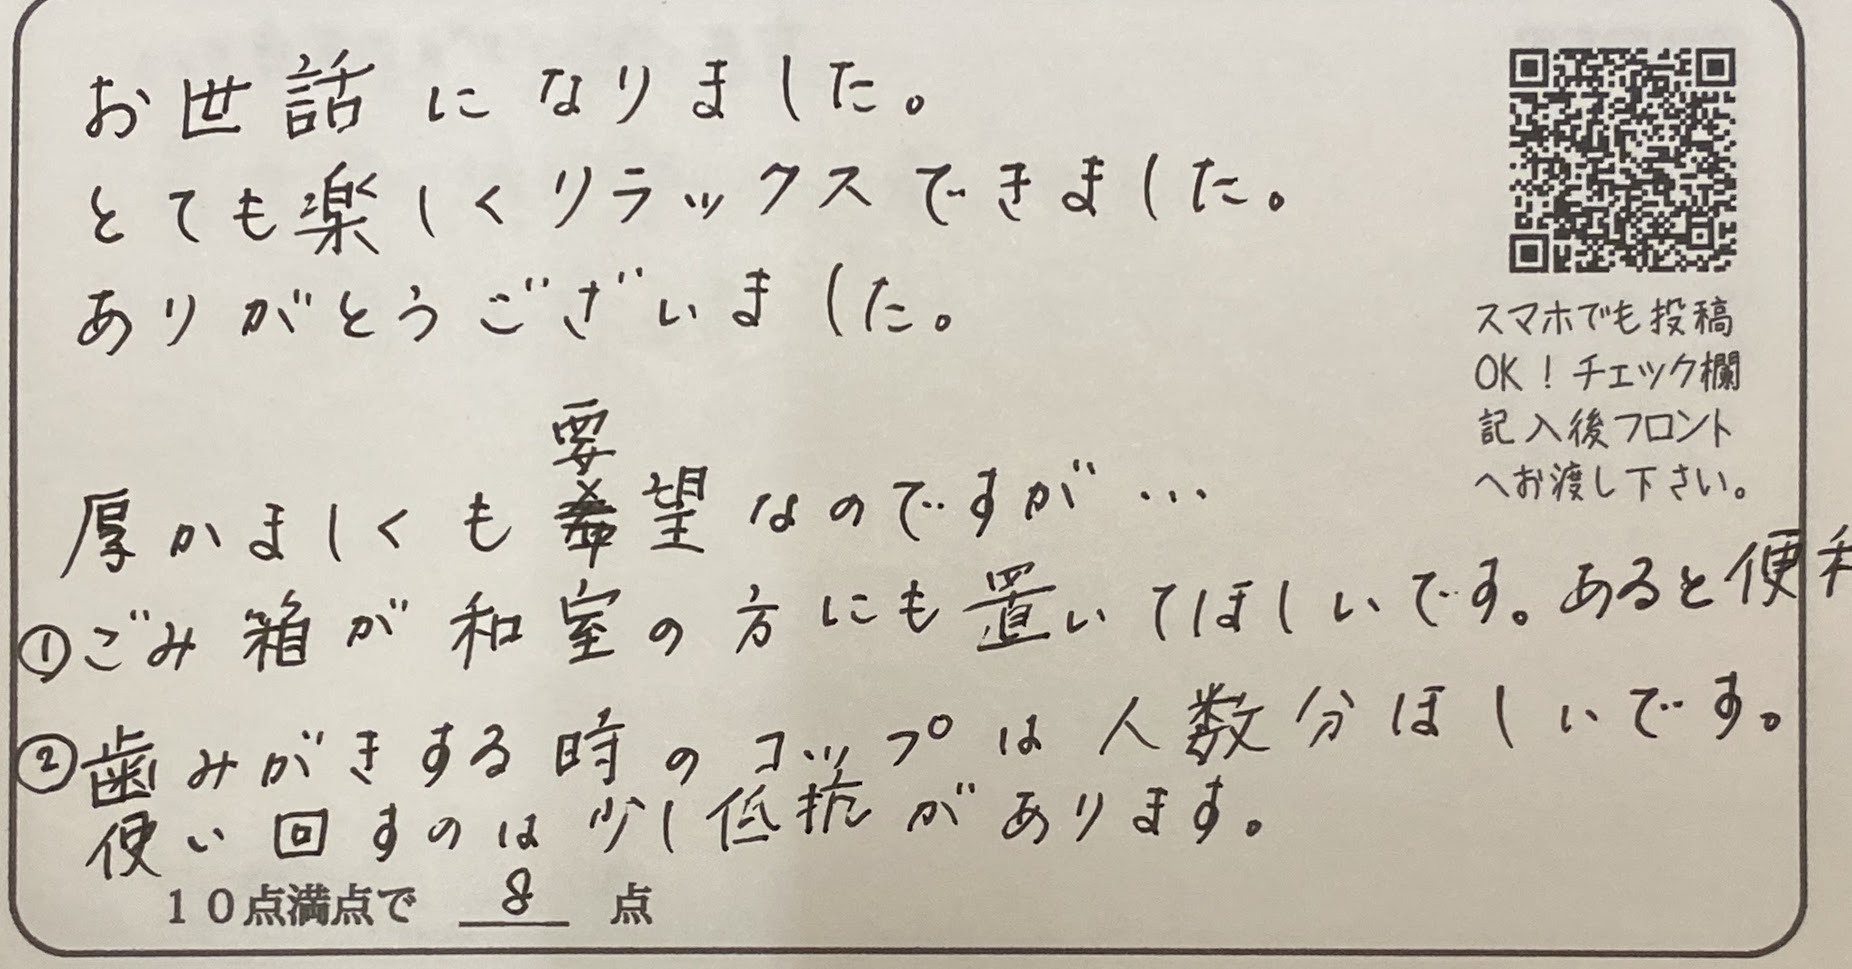 お世話になりました。
とても楽しくリラックスできました。
ありがとうございました。
厚かましくも要望なのですが…
①ごみ箱が和室の方にも置いてほしいです。あると便利
②歯みがきする時のコップは人数分ほしいです。
使い回すのは少し低抗があります。
10点満点で 8 点
スマホでも投稿
OK!チェック欄
記入後フロント
へお渡し下さい。